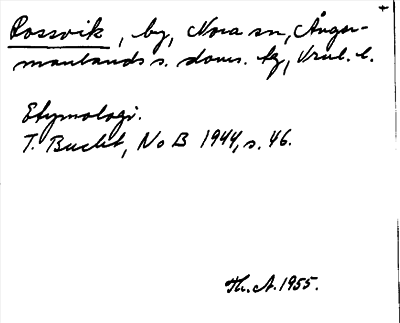 Rossvik, by, Nora sn, Ånger-
manlands s. doms. tg, Vnrl. l.
Etymologi.
T. Bucht, NoB 1944, s. 46.
Th. A. 1955.